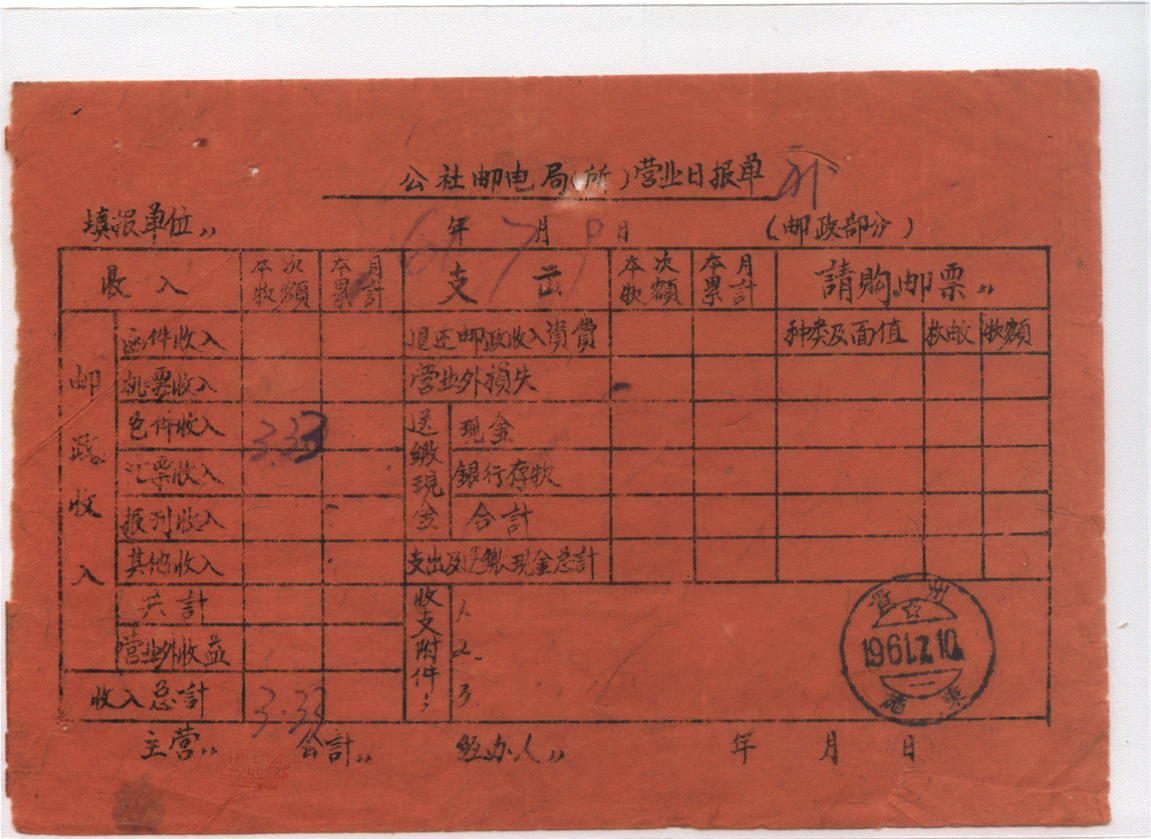 公社邮电局(所)营业日报单
填报单位,, 61年7月9日 (邮政部分)
收入 本次收额 本月累计 支出 本次收额 本月累计 請购邮票,,
邮政收入 函件收入 退还邮政收入資費 种类及面值 枚数 款额
机票收入 营业外損失
包件收入 3.33 送缴現金 现金
汇票收入 銀行存款
报刊收入 合計
其他收入 支出及送缴現金总計
共計 收支附件: 1.
营业外收益 2.
收入总計 3.33 3.
1961.7.10
主营,, 会計,, 经办人,, 年 月 日